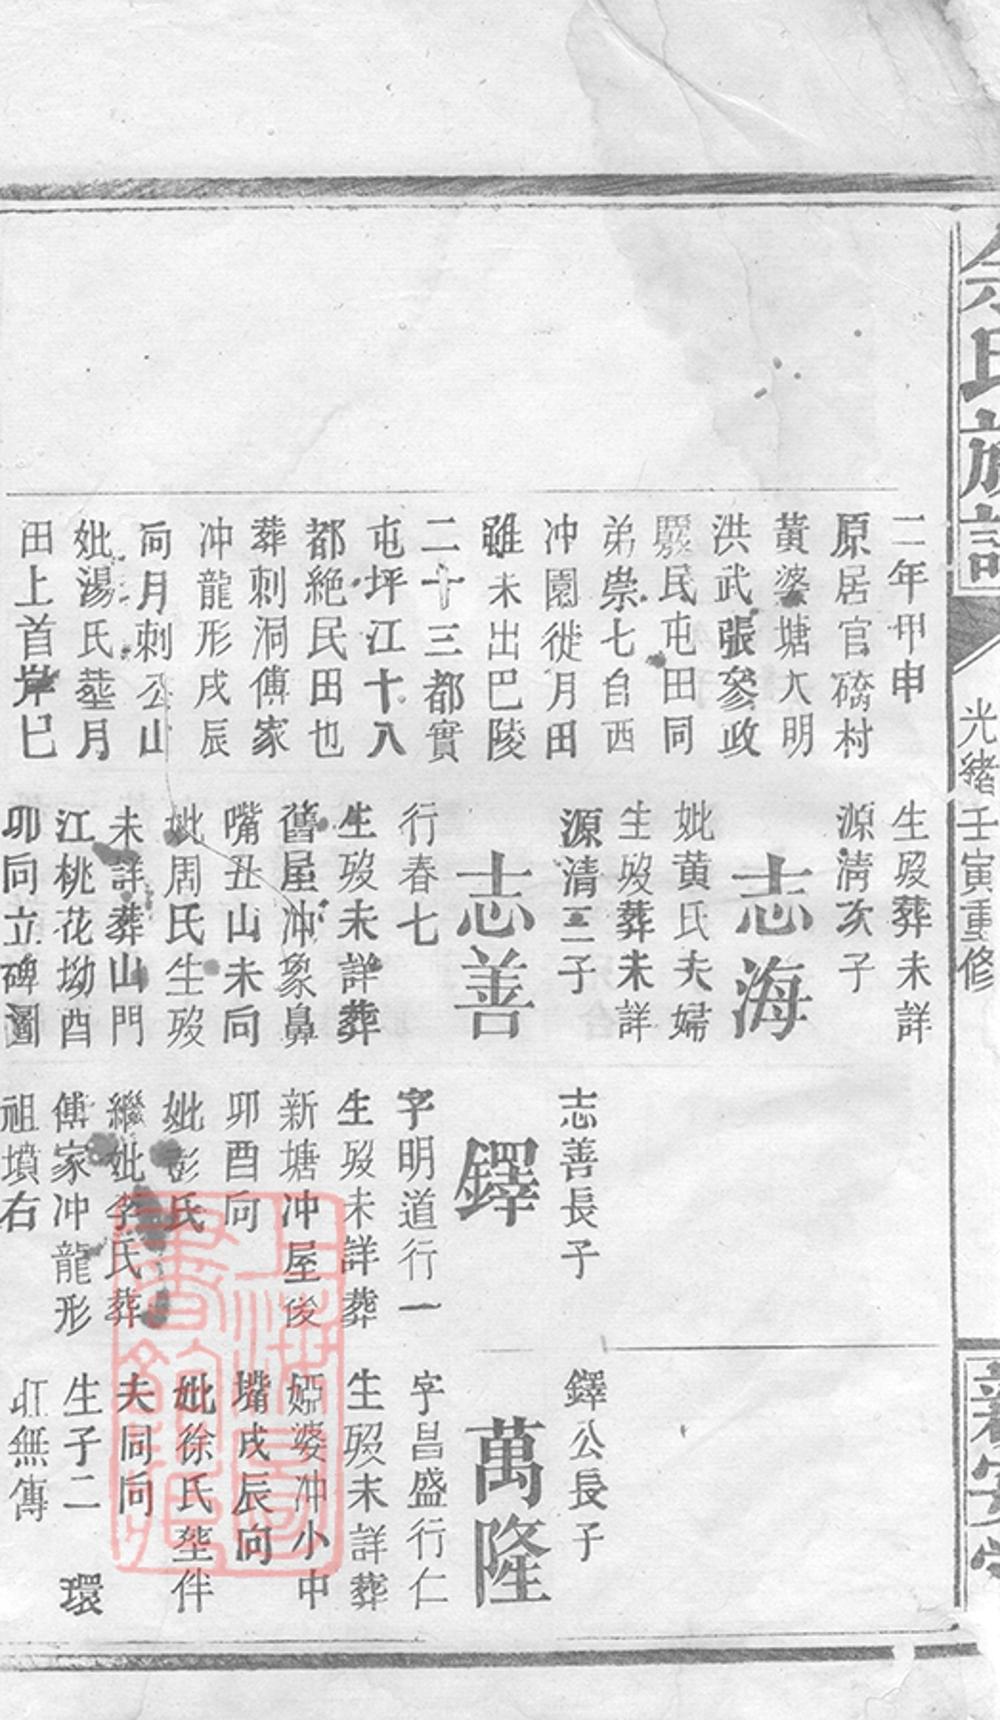 余氏族譜
光緒壬寅重修
新安堂
二年甲申
原居官礄村
黃婆塘大明
洪武張參政
民屯田同
弟崇七自西
冲園徙月田
雖未出巴陵
二十三都實
屯坪江十八
都絶民田也
葬刺洞傅家
冲龍形戌辰
向月刺公山
妣湯氏塟月
田上首岸巳
生歿葬未詳
源淸次子
志海
妣黃氏夫婦
生歿葬未詳
源清三子
志善
行春七
生歿未詳葬
舊屋冲象鼻
嘴丑山未向
妣周氏生歿
未詳葬山門
江桃花坳酉
卯向立碑圖
志善長子
鐸
字明道行一
生歿未詳葬
新塘冲屋後
卯酉向
妣彭氏
繼妣李氏葬
傅家冲龍形
祖墳右
鐸公長子
萬隆
字昌盛行仁
生歿未詳葬
婭婆冲小中
墈戌辰向
妣徐氏塟伴
夫同向
生子二 環
虹無傳
上海圖書館藏